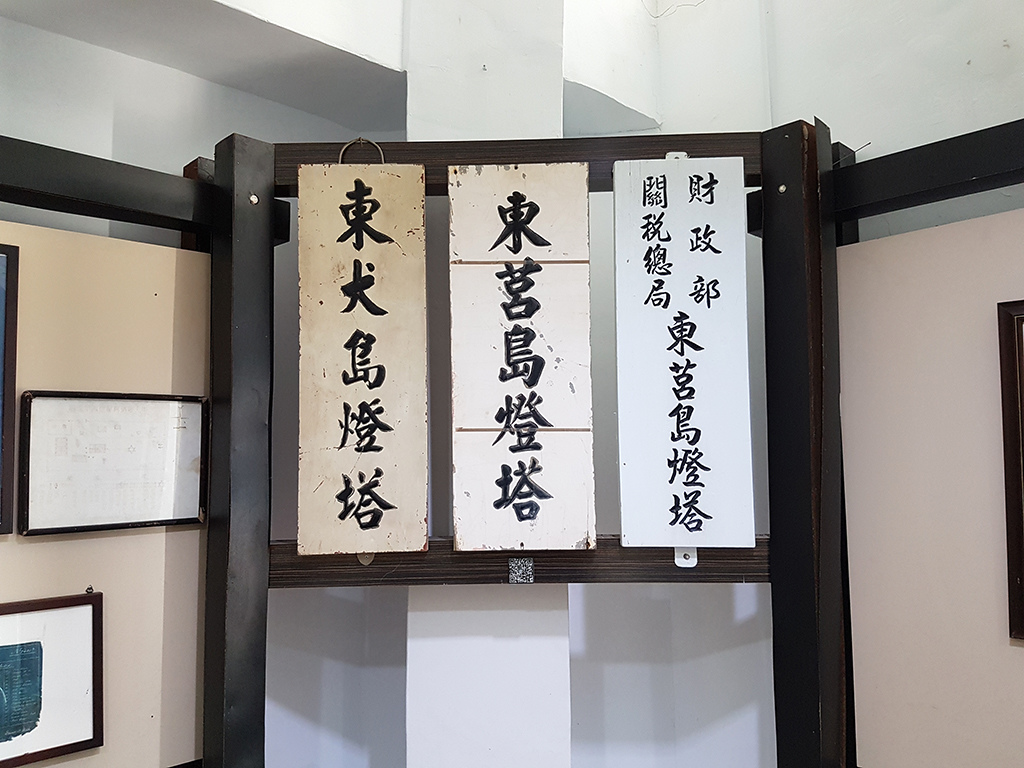 東犬島燈塔
東莒島燈塔
財政部
關稅總局
東莒島燈塔